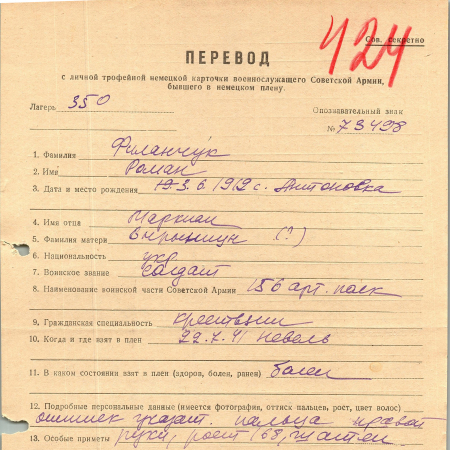 424
Сов. секретно
ПЕРЕВОД
с личной трофейной немецкой карточки военнослужащего Советской Армии,
бывшего в немецком плену.
Лагерь 350
Опознавательный знак
№ 73498
1. Фамилия Филанчук
2. Имя Роман
3. Дата и место рождения 19 3.6.1912 с. Антоновка
4. Имя отца Маркиан
5. Фамилия матери (?)
6. Национальность укр
7. Воинское звание Солдат
8. Наименование воинской части Советской Армии 156 арт. полк
9. Гражданская специальность крестьянин
10. Когда и где взят в плен 22.7.41 Невель
11. В каком состоянии взят в плен (здоров, болен, ранен) болен
12. Подробные персональные данные (имеется фотография, оттиск пальцев, рост, цвет волос)
оттиск указат. пальца правой
13. Особые приметы руки, рост 168,